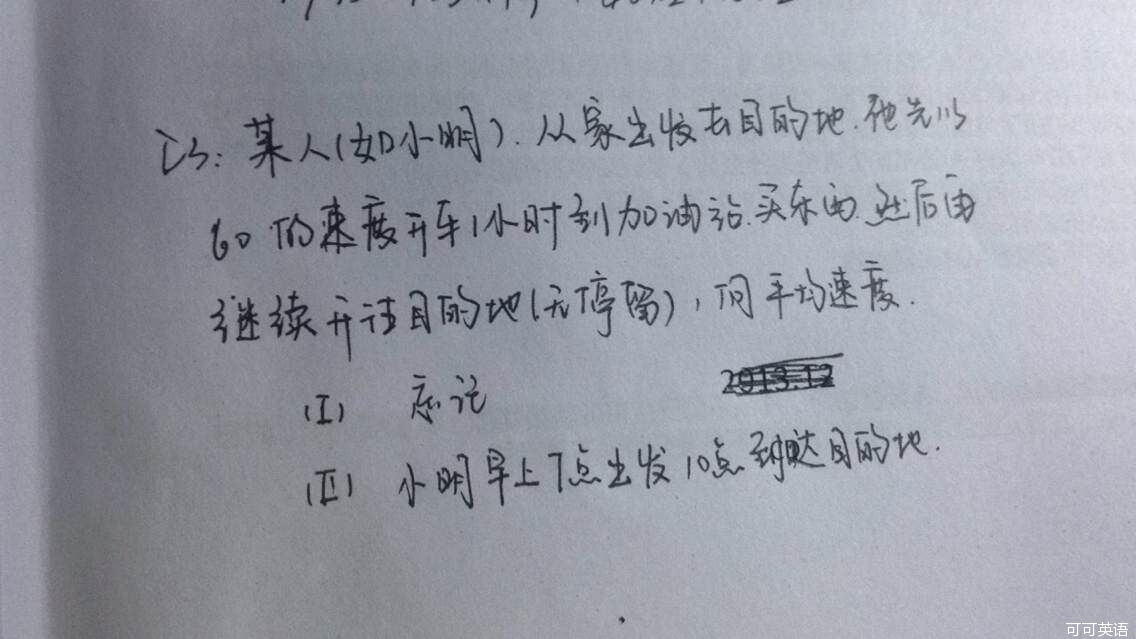 某人(如小明).从家出发去目的地.他先以
60的速度开车1小时到加油站买东西.然后再
继续开往目的地(无停留),问平均速度.
(I) 忘记
(II) 小明早上7点出发10点到达目的地.
可可英语